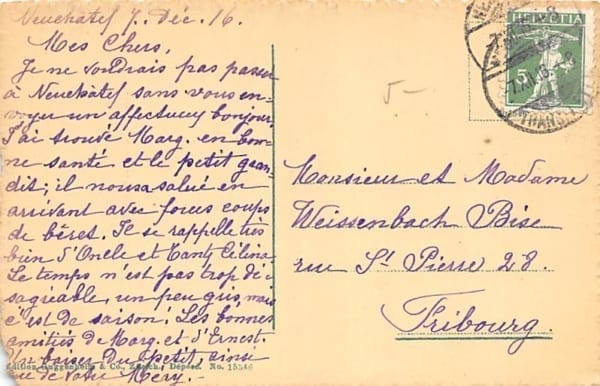 Neuchâtel 7. Déc. 16.
Mes Chers,
Je ne voudrais pas passer
à Neuchâtel sans vous en-
voyer un affectueux bonjour.
J'ai trouvé Marg. en bon-
ne santé et le petit gran-
dit; il nous a salué en
arrivant avec force coups
de béret. Il se rappelle très
bien d'Oncle et Tante Célina.
Le temps n'est pas trop dé-
sagréable, un peu gris, mais
c'est de saison. Les bonnes
amitiés de Marg. et d'Ernest.
Un baiser du petit, ainsi
que de votre Mery.
Edition Guggenheim & Co., Zürich, Déposé. No. 15346
HELVETIA
5
7.XII.16
5-
Monsieur et Madame
Weissenbach Bise
rue St Pierre 28.
Fribourg.